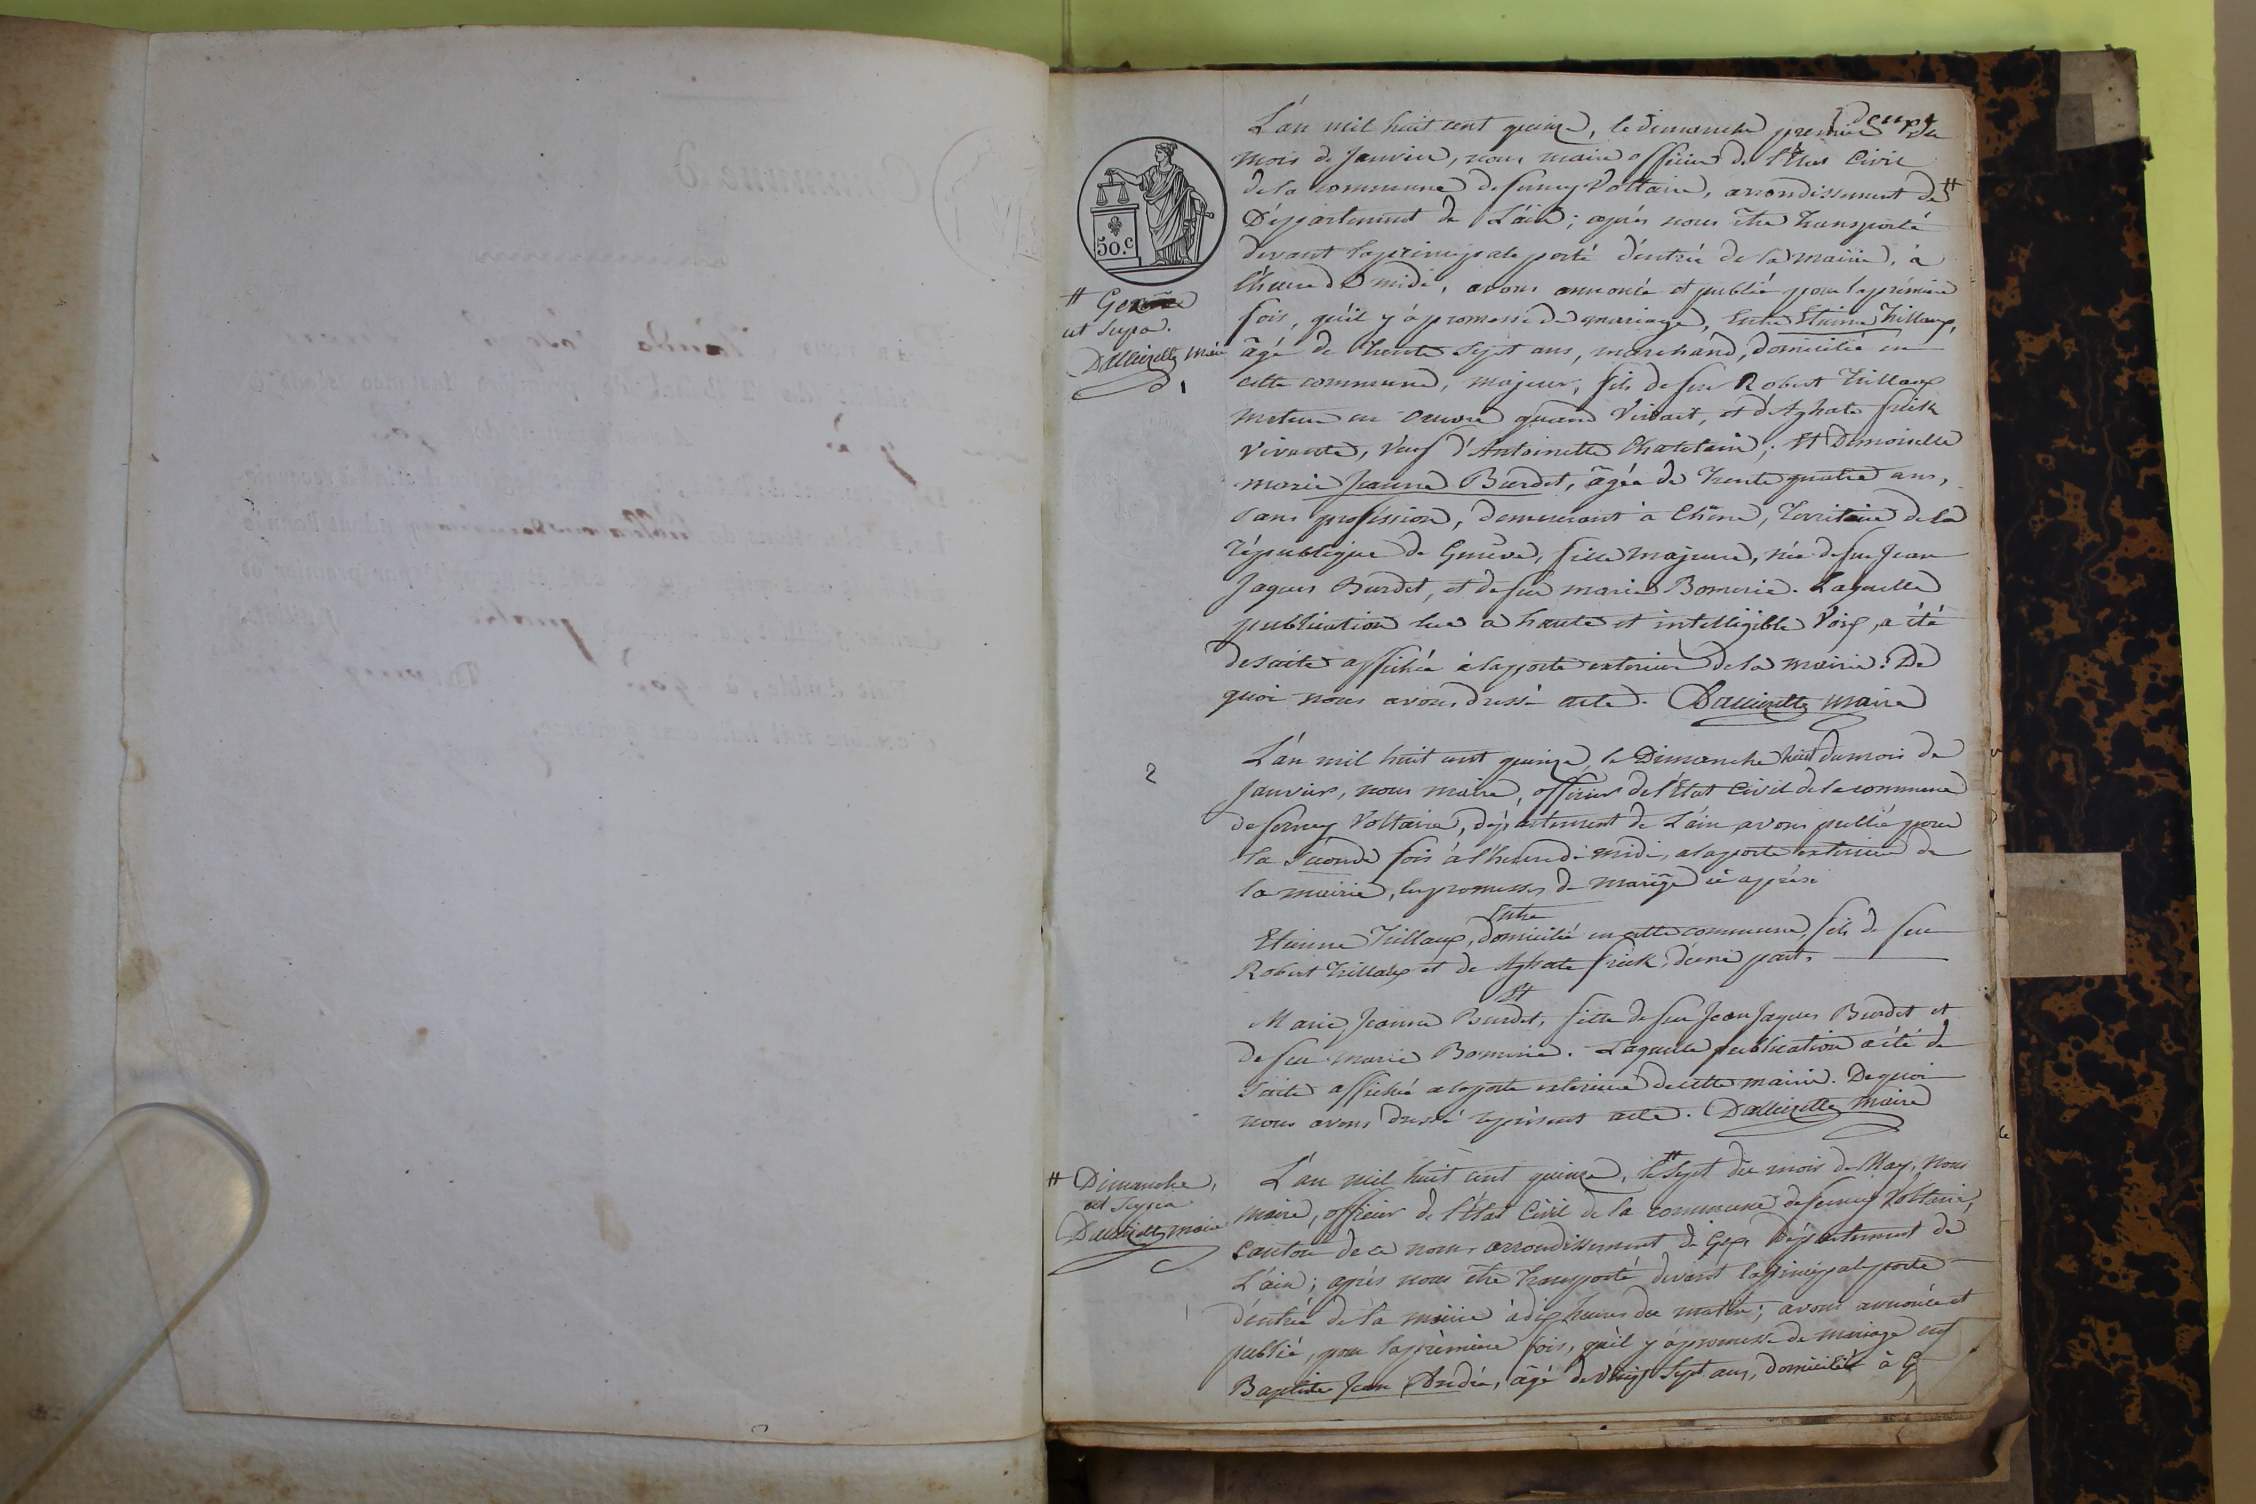 Deux
L'an mil huit cent quinze, le dimanche premier du
mois de Janvier, nous maire officier de l'Etat Civil
de la commune de ferney Voltaire, arrondissement de #
Département de L'ain; aprés nous être transporté
devant la principale porte d'entrée de la mairie, à
l'heure de midi, avons annoncé et publié pour la prémiere
fois, qu'il y à promesse de mariage, Entre Etienne Trillaux,
âgé de trente sept ans, marchand, domicilié en
cette commune, majeur, fils de feu Robert Trillaux
metteur en oeuvre quand Vivait, et d'Aghate frick
Vivante, Veuf d'Antoinette Chatelain; Et Demoiselle
marie Jeanne Burdet, âgée de trente quatre ans,
sans profession, demeurant à Chêne, Territoire de la
république de Genève, fille majeure, née de feu Jean
Jaques Burdet, et de feu marie Bomerie. Laquelle
publication lue a haute et intelligible Voix, a été
de suite affichée à la porte exterieur de la mairie. De
quoi nous avons dressé acte. maire
50.c
# Gex
ut supra.
maire
1
2
L'an mil huit cent quinze, le Dimanche huit du mois de
Janvier, nous maire, officier de l'Etat Civil de la commune
de ferney Voltaire, département de L'ain avons publié pour
la seconde fois à l'heure de midi, a la porte exterieure de
la mairie, les promesses de mariage ci après.
Entre
Etienne Trillaux, domicilié en cette commune, fils de feu
Robert Trillaux et de Aghate frick, d'une part.
Et
Marie Jeanne Burdet, fille de feu Jean Jaques Burdet et
de feu marie Bomerie. Laquelle publication a été de
suite affichée a la porte exterieure de cette mairie. De quoi
nous avons dressé le présent acte. maire
# Dimanche,
ut supra
maire
L'an mil huit cent quinze, le # sept du mois de May, nous
maire, officier de l'état Civil de la commune de ferney Voltaire,
canton de ce nom, arrondissement de Gex Département de
L'ain; aprés nous être transporté devant la principale porte
d'entrée de la mairie à dix heures du matin; avons annoncé et
publié, pour la prèmiere fois, qu'il y à promesse de mariage ent
Baptiste Jean André, âgé de vingt Sept ans, domicilié à G